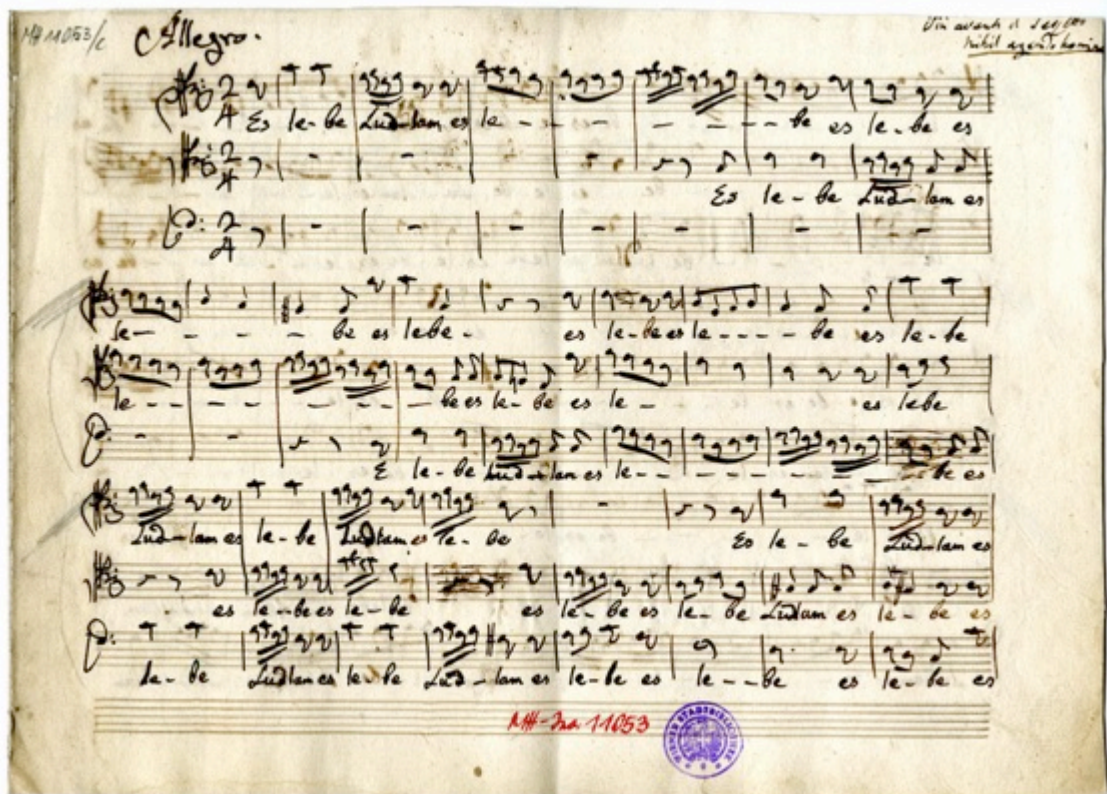 MH 11053/c
Allegro.
2/4 Es le-be Lud-lam es le - - - - - - - be es le-be es
2/4 Es le-be Lud-lam es
2/4
le - - - - be es lebe - es le-be es le - - - - be es le-be
le - - - - - - - - be es le-be es le - es lebe
E le-be Lud-lam es le - - - - - - - be es
Lud-lam es le-be Ludlam es le-be Es le-be Lud-lam es
es le-be es le-be es le-be es le-be Ludlam es le-be es
le-be Ludlam es le-be Lud-lam es le-be es le--be es le-be es
MH-Ina 11053